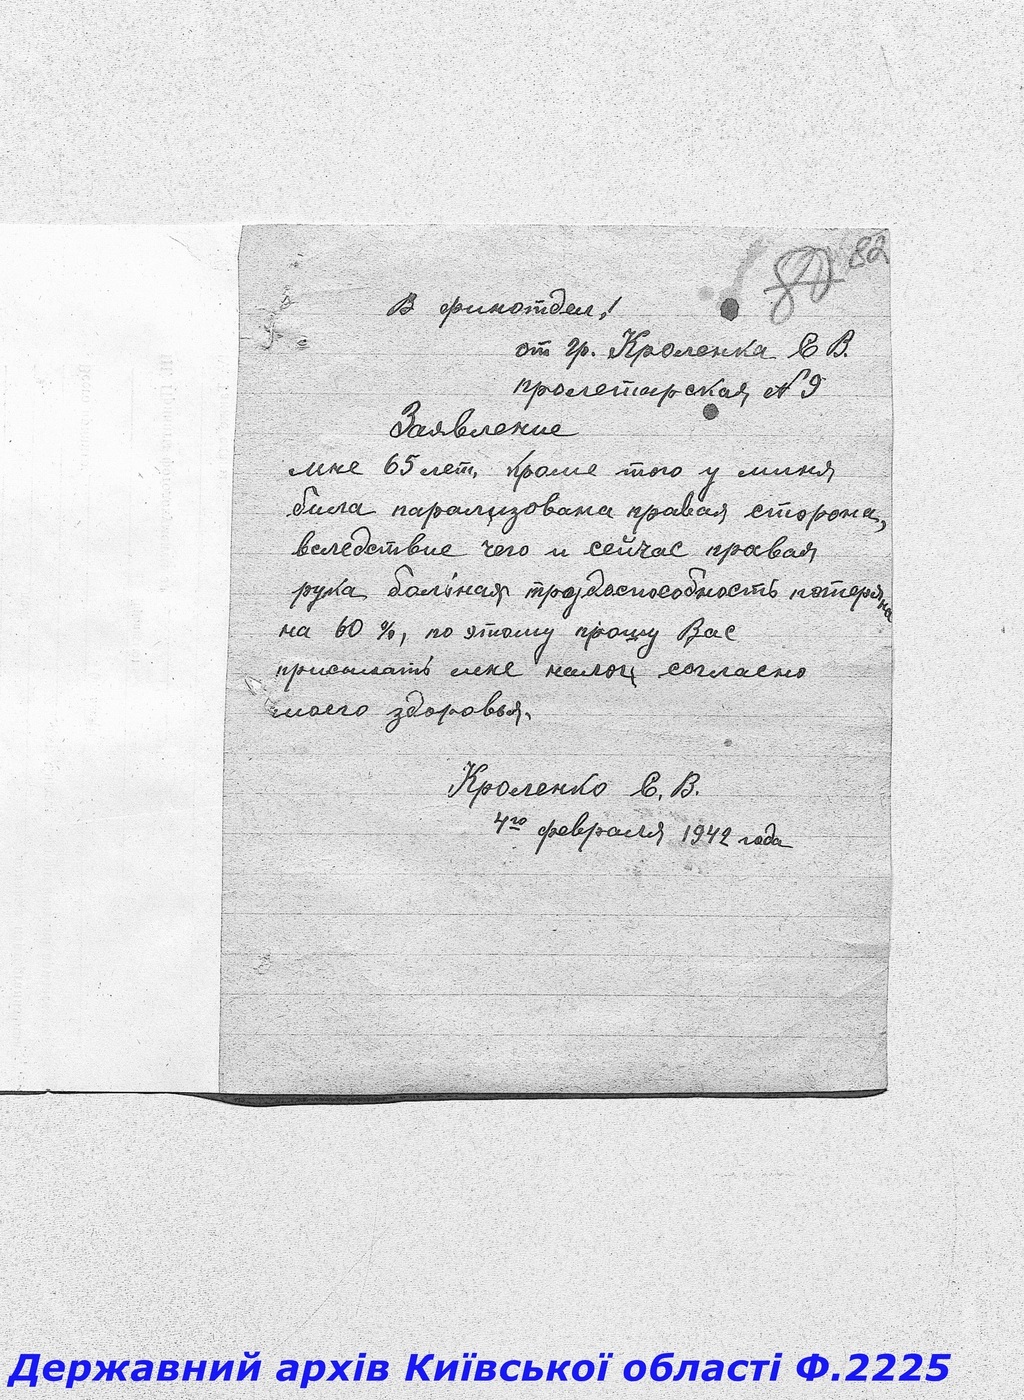 82
В финотдел!
от гр. Кроленка Е В.
пролетарская №9
Заявление
мне 65 лет, Кроме того у миня
била парализована правая сторона,
вследствие чего и сейчас правая
рука больная трудоспособность потеряна
на 60 %, по этому прошу Вас
присилать мне налог согласно
моего здоровья.
Кроленко Е. В.
4го февраля 1942 года
Державний архів Київської області Ф.2225